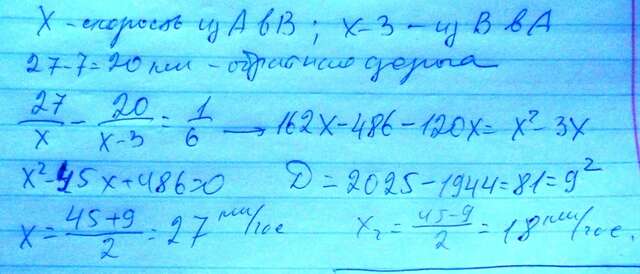 x - скорость из A в B ; x-3 - из B в A
27-7=20 км - обратная дорога
27/x - 20/(x-3) = 1/6 → 162x-486-120x = x²-3x
x²-45x+486=0 D=2025-1944=81=9²
x = (45+9)/2 = 27 км/час x₂ = (45-9)/2 = 18 км/час.